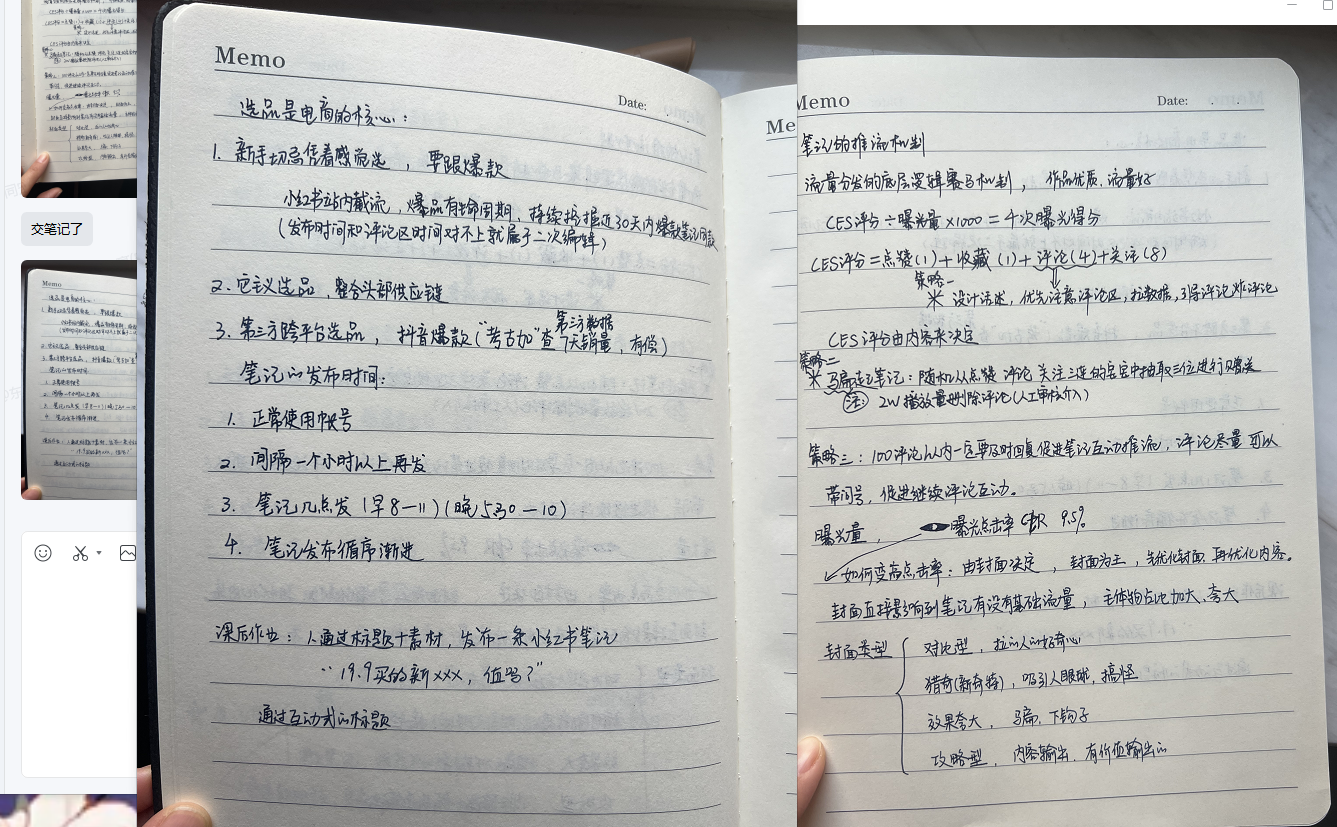 交笔记了
Memo
Date:
选品是电商的核心：
1. 新手切忌凭着感觉选，要跟爆款
小红书站内截流，爆品有生命周期，持续挖掘近30天内爆款笔记同款
（发布时间和评论区时间对不上就属于二次编辑）
2. 定义选品，整合头部供应链
第三方数据
3. 第三方跨平台选品，抖音爆款（"考古加"查7天销量，有偿）
笔记的发布时间：
1. 正常使用帐号
2. 间隔一个小时以上再发
3. 笔记几点发（早8—11）（晚530—10）
4. 笔记发布循序渐进
课后作业：1.通过标题+素材，发布一条小红书笔记
"19.9买的新xxx，值吗？"
通过互动式的标题
Me
Memo
Date:
笔记的推流机制
流量分发的底层逻辑赛马机制，作品优质，流量好
CES评分÷曝光量×1000=千次曝光得分
CES评分=点赞(1)+收藏(1)+评论(4)+关注(8)
策略一
※ 设计话术，优先注意评论区，拉数据，引导评论对评论
CES评分由内容来决定
策略二
※ 骗赞笔记：随机从点赞 评论 关注三连的宝宝中抽取三位进行赠送
注： 2W播放量时删除评论(人工审核介入)
策略三：100评论以内一定要及时回复促进笔记互动推流，评论尽量可以
带问号，促进继续评论互动。
曝光量， 曝光点击率 9.5%
如何变高点击率：由封面决定，封面为主，先优化封面 再优化内容。
封面直接影响到笔记有没有基础流量，主体物占比加大、夸大
封面类型
对比型，拉的人的好奇心
猎奇(新奇特)，吸引人眼球，搞怪
效果夸大，骗，下钩子
攻略型，内容输出，有价值输出的